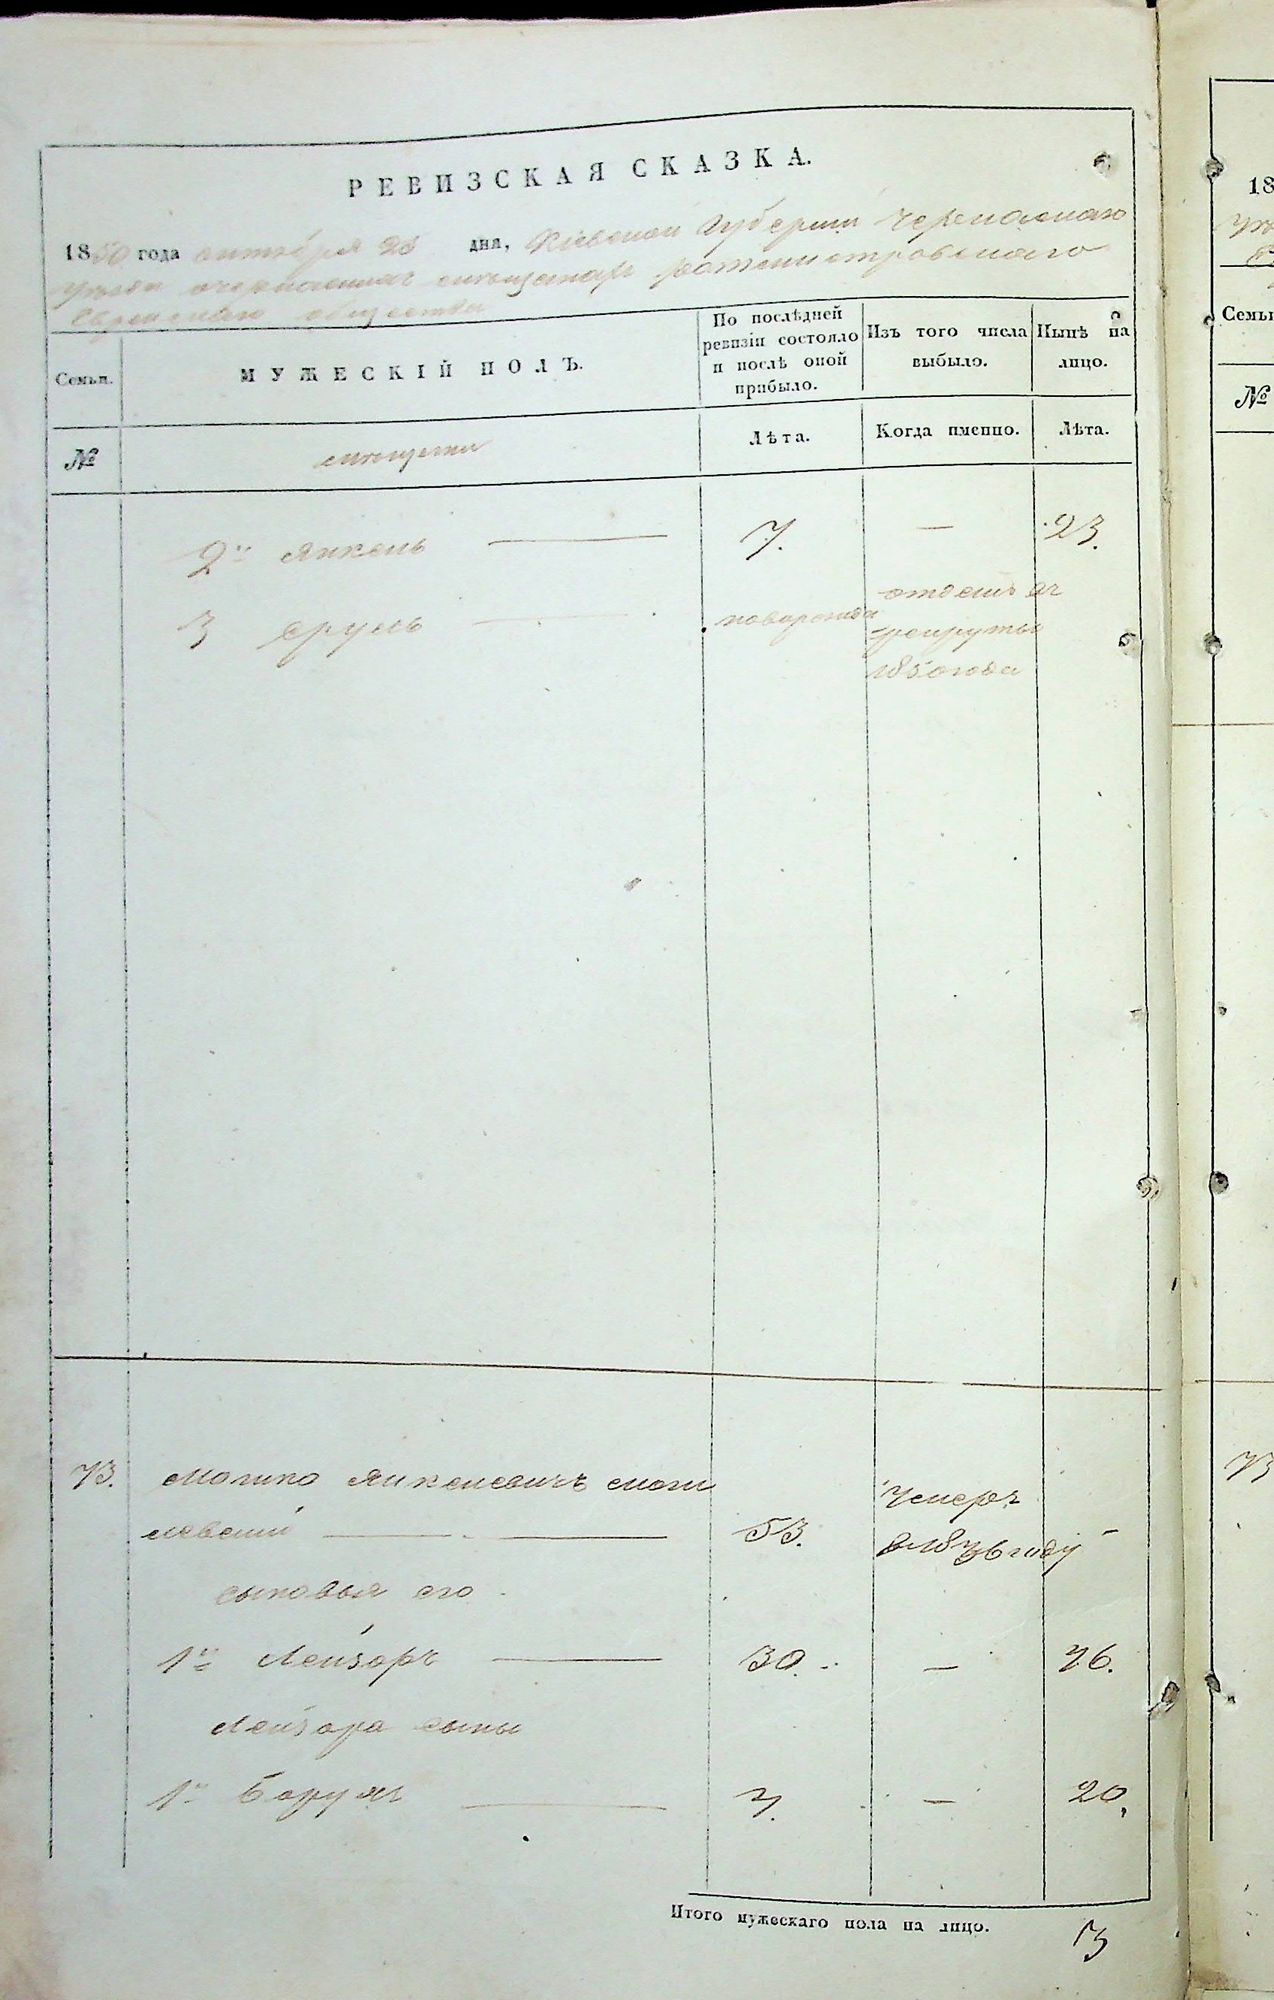 РЕВИЗСКАЯ СКАЗКА.
1850 года октября 28 дня, Кіевской Губерніи Черкаскаго
уезда Еврейскаго общества
Семьи. МУЖЕСКІЙ ПОЛЪ. По послѣдней ревизіи состояло и послѣ оной прибыло. Изъ того числа выбыло. Нынѣ на лицо.
№ Лѣта. Когда именно. Лѣта.
2й Янкель 7. — 23.
3 Сруль новорожд отданъ въ
рекруты
1850 года
73. Мошко Янкелевичъ Моги
левский 53. умеръ
в 1836 году
сыновья его
1й Лейзоръ 30. — 46.
Лейзора сыны
1й Борухъ 4. — 20.
Итого мужескаго пола на лицо. 3
18
Семьи
№
73